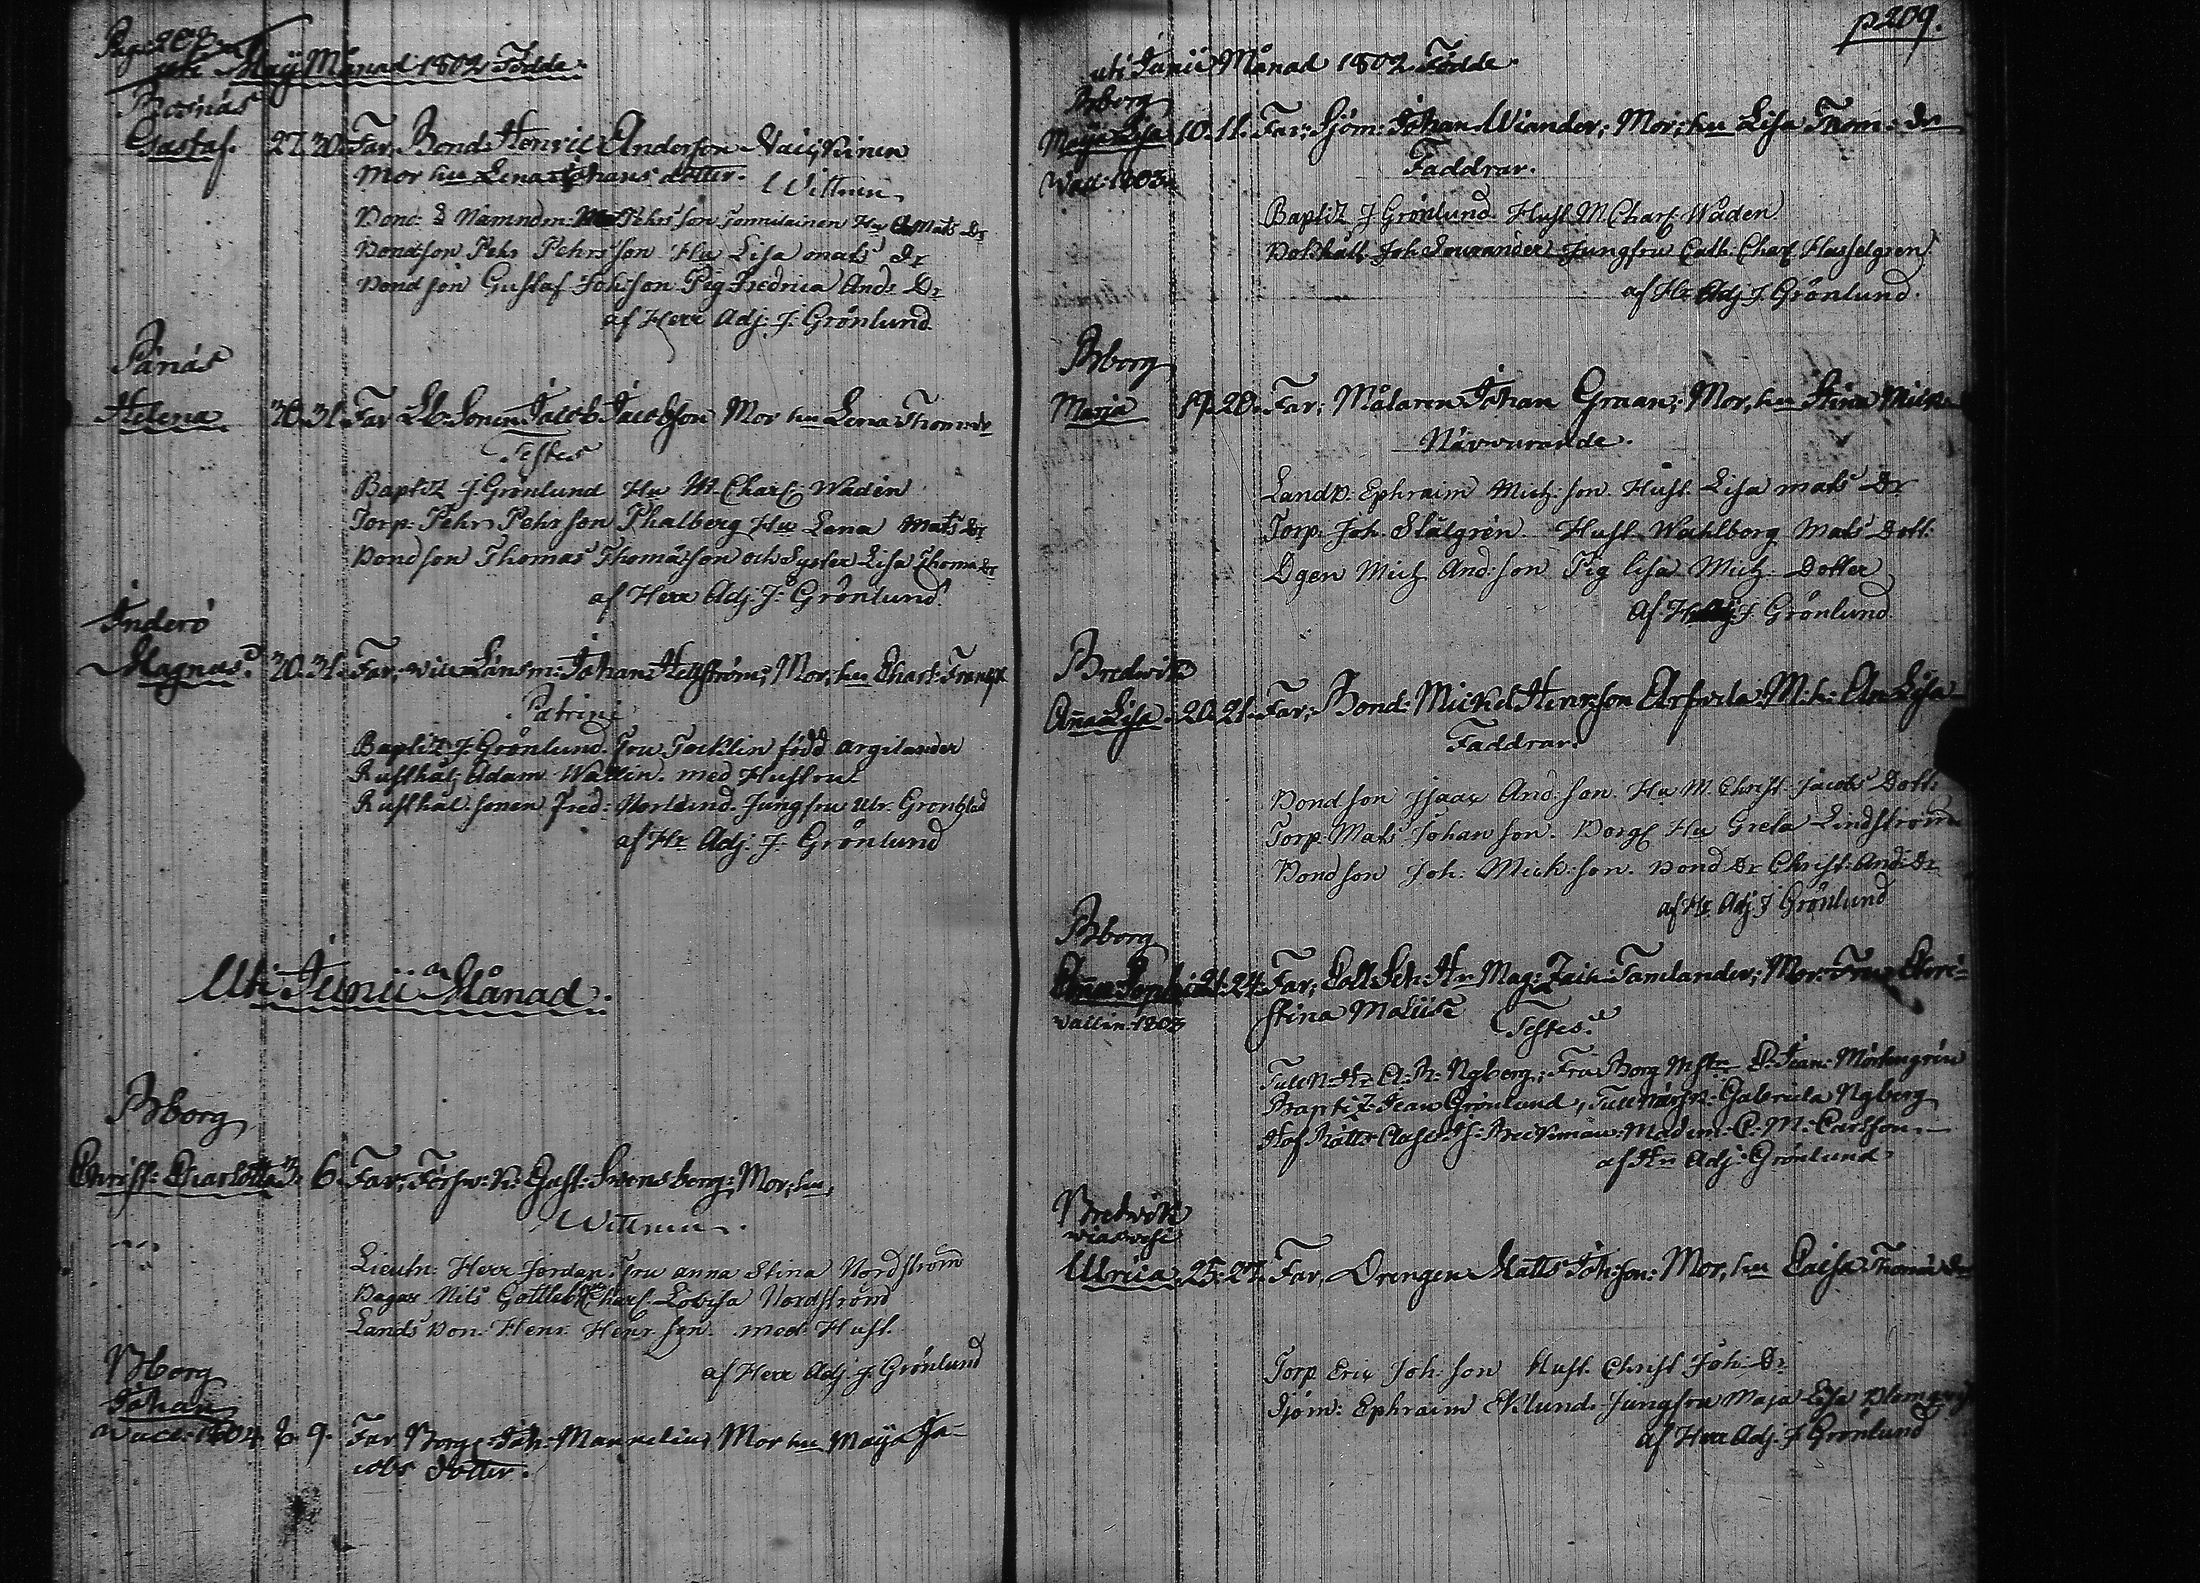 Pag: 208.
uti Maij Månad 1802 Födde.
Gustaf. 27. 30. Far, Bond. Henric Anderson
Mor hu Lena Johans dotter. Wittnen
Bond: & Nämndm: Pehrsson Hu Mats Dr
Bondson Pehr Pehrsson Hu Lisa Mats Dr
Bondson Gustaf Johsson Pig Fredrica And: Dr
af Herr Adj: J: Grönlund
Sänäs
Helena. 30. 31. Far Sonen Jacob Jacobson Mor hu Lena Thom: dr
Testes
Baptiz J Grönlund Hu M Charl: Wadén
Torp: Pehr Pehrson Phalberg Hu Lena Mats Dr
Bondson Thomas Thomasson och Syster Lisa Thoms Dr
af Herr Adj: J: Grönlund
Inderö
Magnus. 30. 31. Far, Länsm: Johan Hellström; Mor, hu Charl:
Patrini
Baptiz J: Grönlund. Fru Tacklin född argilander
Rusthål: Adam Wallin. med Hustru
Rusthål: sonen Fred: Norlund. Jungfru Ulr. Gronblad
af Hr Adj. J. Grönlund
Uti Junii Månad.
Bborg
Christ: Charlotta 3. 6. Far, Gust: Svensberg; Mor, hu,
Wittnen.
Lieutn: Herr Jordan. Fru anna Stina Nordström
Bagar Nils Gottleb Charl: Lovisa Nordström
Lands Bon. Henr. Henr. son. med Hust.
af Herr Adj. J. Grönlund
Bborg
Johan
8. 9. Far Borg: Joh: Mannelius, Mor hu Maija Ja-
cobs dotter.
p 209.
uti Junii Månad 1802 Födde.
Bborg
Maja Lisa 10. 11. Far: Sjöm: Johan Wiander; Mor, hu Lisa Thom: dr
Vacc: 1803.
Faddrar.
Baptiz J Grönlund. Hust. M. Charl: Wåden
Joh Jungfru Cath. Charl Hasselgren
af Hr Adj J. Grönlund.
Bborg
Maija 19. 20. Far; Målaren Johan Graan; Mor, hu Stina Mick:
Närwarande.
Landb. Ephraim Mich: son. Hust. Lisa mats Dr
Torp. Joh. Stålgrén Hust. Wahlborg Mats Dott:
Dgen Mich And:son Pig lisa Mich: Dotter
af J Grönlund.
Bredwik
Anna Lisa. 20. 21. Far, Bond: Mickel Henr:son Arfwila: M: h: An Lisa
Faddrar.
Bondson Isaac And: son. Hu M. Christ. Jacobs Dott:
Torp: Mats Johan son. Borg: Hu Greta Lindström
Bondson Joh: Mick: son. Bond Dr Christ: And: Dr
af Hr Adj J Grönlund
Bborg
21. 24. Far, Hr Mag: Zach: Tamlander; Mor: Fru Chri-
stina
Vaccin: 1803
Testes.
Hr C: R: Nyberg; Fru Borg Mstr
Baptiz Jean Grönlund, Gabriela Nyberg
Hof Rätts Madm: C: M: Carlson.
af Hr Adj: Grönlund.
Bredwik
Ulrica 25. 27. Far, Drengen Matts Joh:son: Mor, hu Caisa Thoms Dr
Torp. Eric Joh: son Hust. Christ Joh: Dr
Sjöm: Ephraim Ekelund. Jungfru Maja Lisa
af Herr Adj. J Grönlund